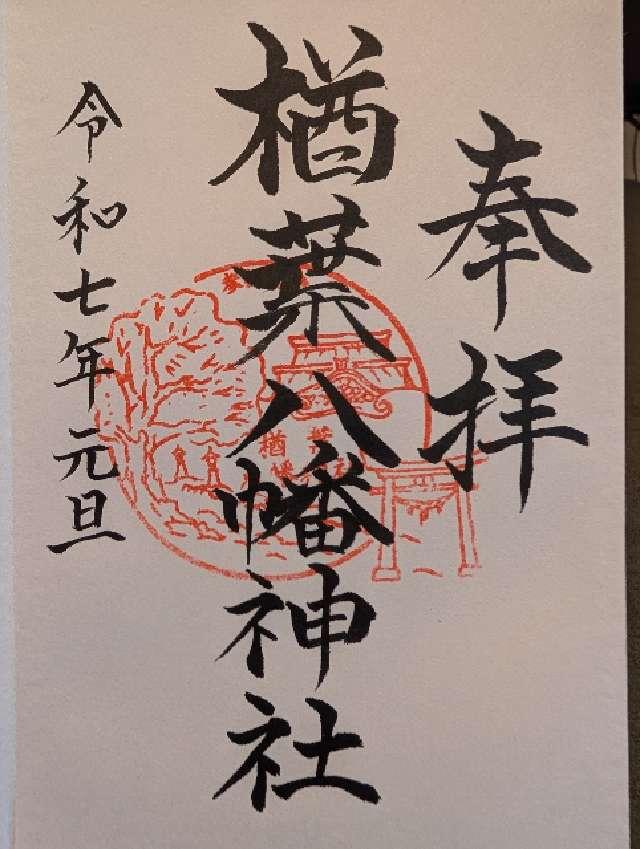 奉拝
楢葉八幡神社
令和七年元旦